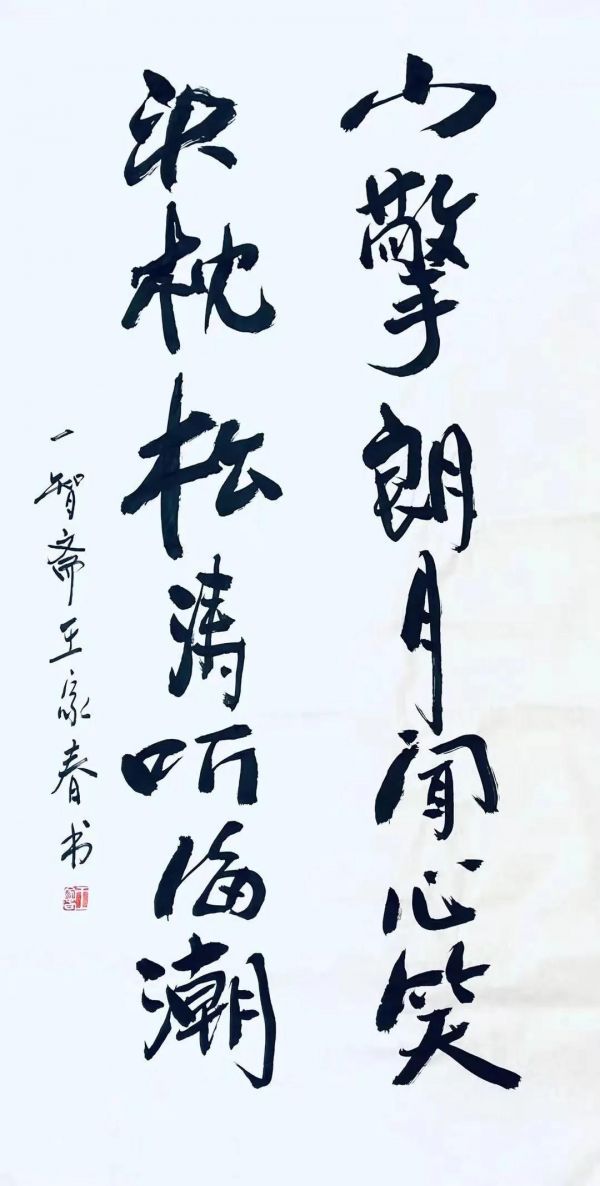 山擎朗月闻心笑
水枕松涛听海潮
一智斋王家春书